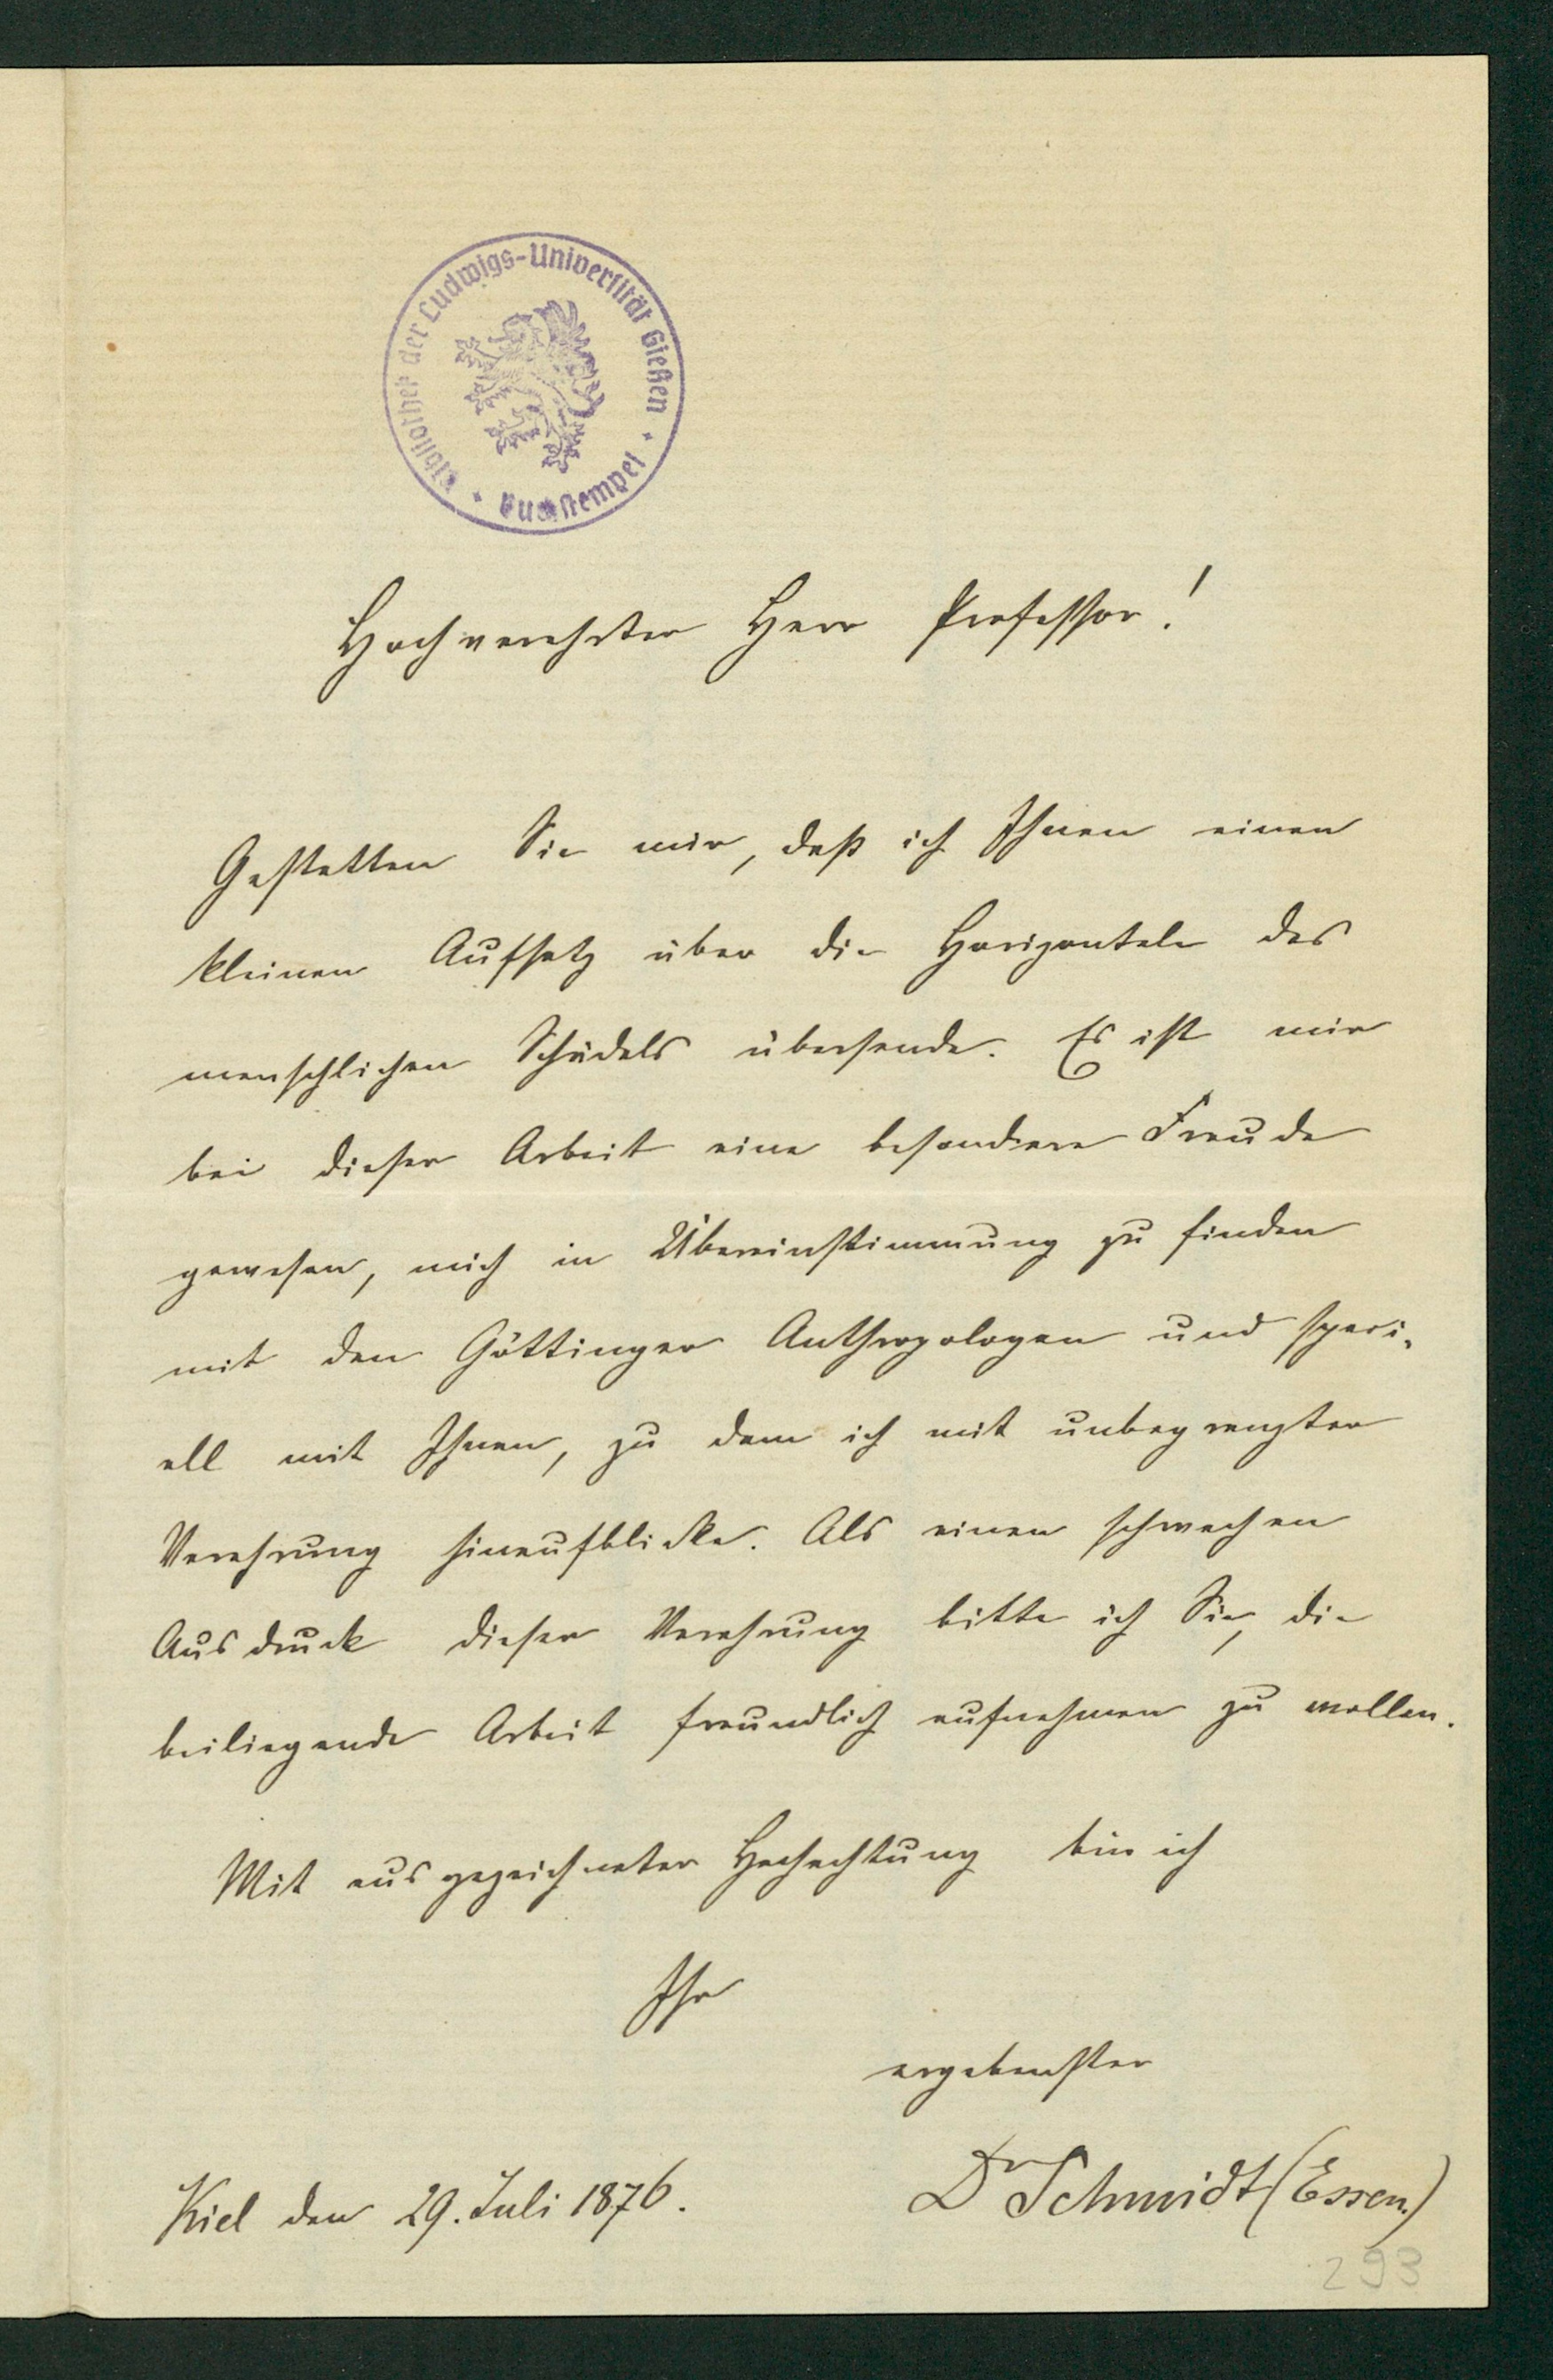 Bibliothek der Ludwigs-Universität Gießen
Buchstempel
Hochverehrter Herr Professor!
Gestatten Sie mir, daß ich Ihnen einen
kleinen Aufsatz über die Horizontale des
menschlichen Schädels übersende. Es ist mir
bei dieser Arbeit eine besondere Freude
gewesen, mich in Übereinstimmung zu finden
mit den Göttinger Anthropologen und speci-
ell mit Ihnen, zu dem ich mit unbegrenzter
Verehrung hinaufblicke. Als einen schwachen
Ausdruck dieser Verehrung bitte ich Sie, die
beiliegende Arbeit freundlich aufnehmen zu wollen.
Mit ausgezeichneter Hochachtung bin ich
Ihr
ergebenster
Dr Schmidt (Essen.)
Kiel den 29. Juli 1876.
293